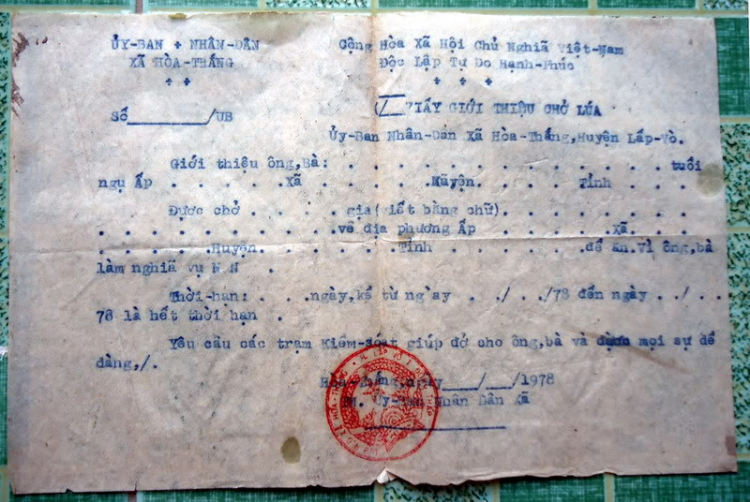 ỦY-BAN + NHÂN-DÂN
XÃ HÒA-THẮNG
Cộng Hòa Xã Hội Chủ Nghĩa Việt-Nam
Độc Lập Tự Do Hạnh-Phúc
SỐ________/UB
GIẤY GIỚI THIỆU CHỞ LÚA
Ủy-Ban Nhân-Dân Xã Hòa-Thắng,Huyện Lấp-Vò.
Giới thiệu ông,Bà: . . . . . . . . . . . . . . . . tuổi
ngụ Ấp . . . . . .xã . . . . . . Huyện. . . . . .Tỉnh . . . . .
Được chở . . . . . gịa(viết bằng chữ). . . . . . . . . .
. . . . . . . . . . . .về địa phương Ấp . . . . . . .Xã. . . . .
. . . . . .Huyện. . . . . . . .Tỉnh . . . . . . . .để ăn.vì ông,bà
làm nghĩa vụ N N .
Thời-hạn: . . .ngày,kể từ ngày . ./. ./78 đến ngày . ./ . .
78 là hết thời hạn .
Yêu cầu các trạm Kiểm-soát giúp đở cho ông,bà và được mọi sự dể
dàng,/.
Hòa-Thắng,ngày___/___/1978
Ủy-Ban Nhân Dân Xã